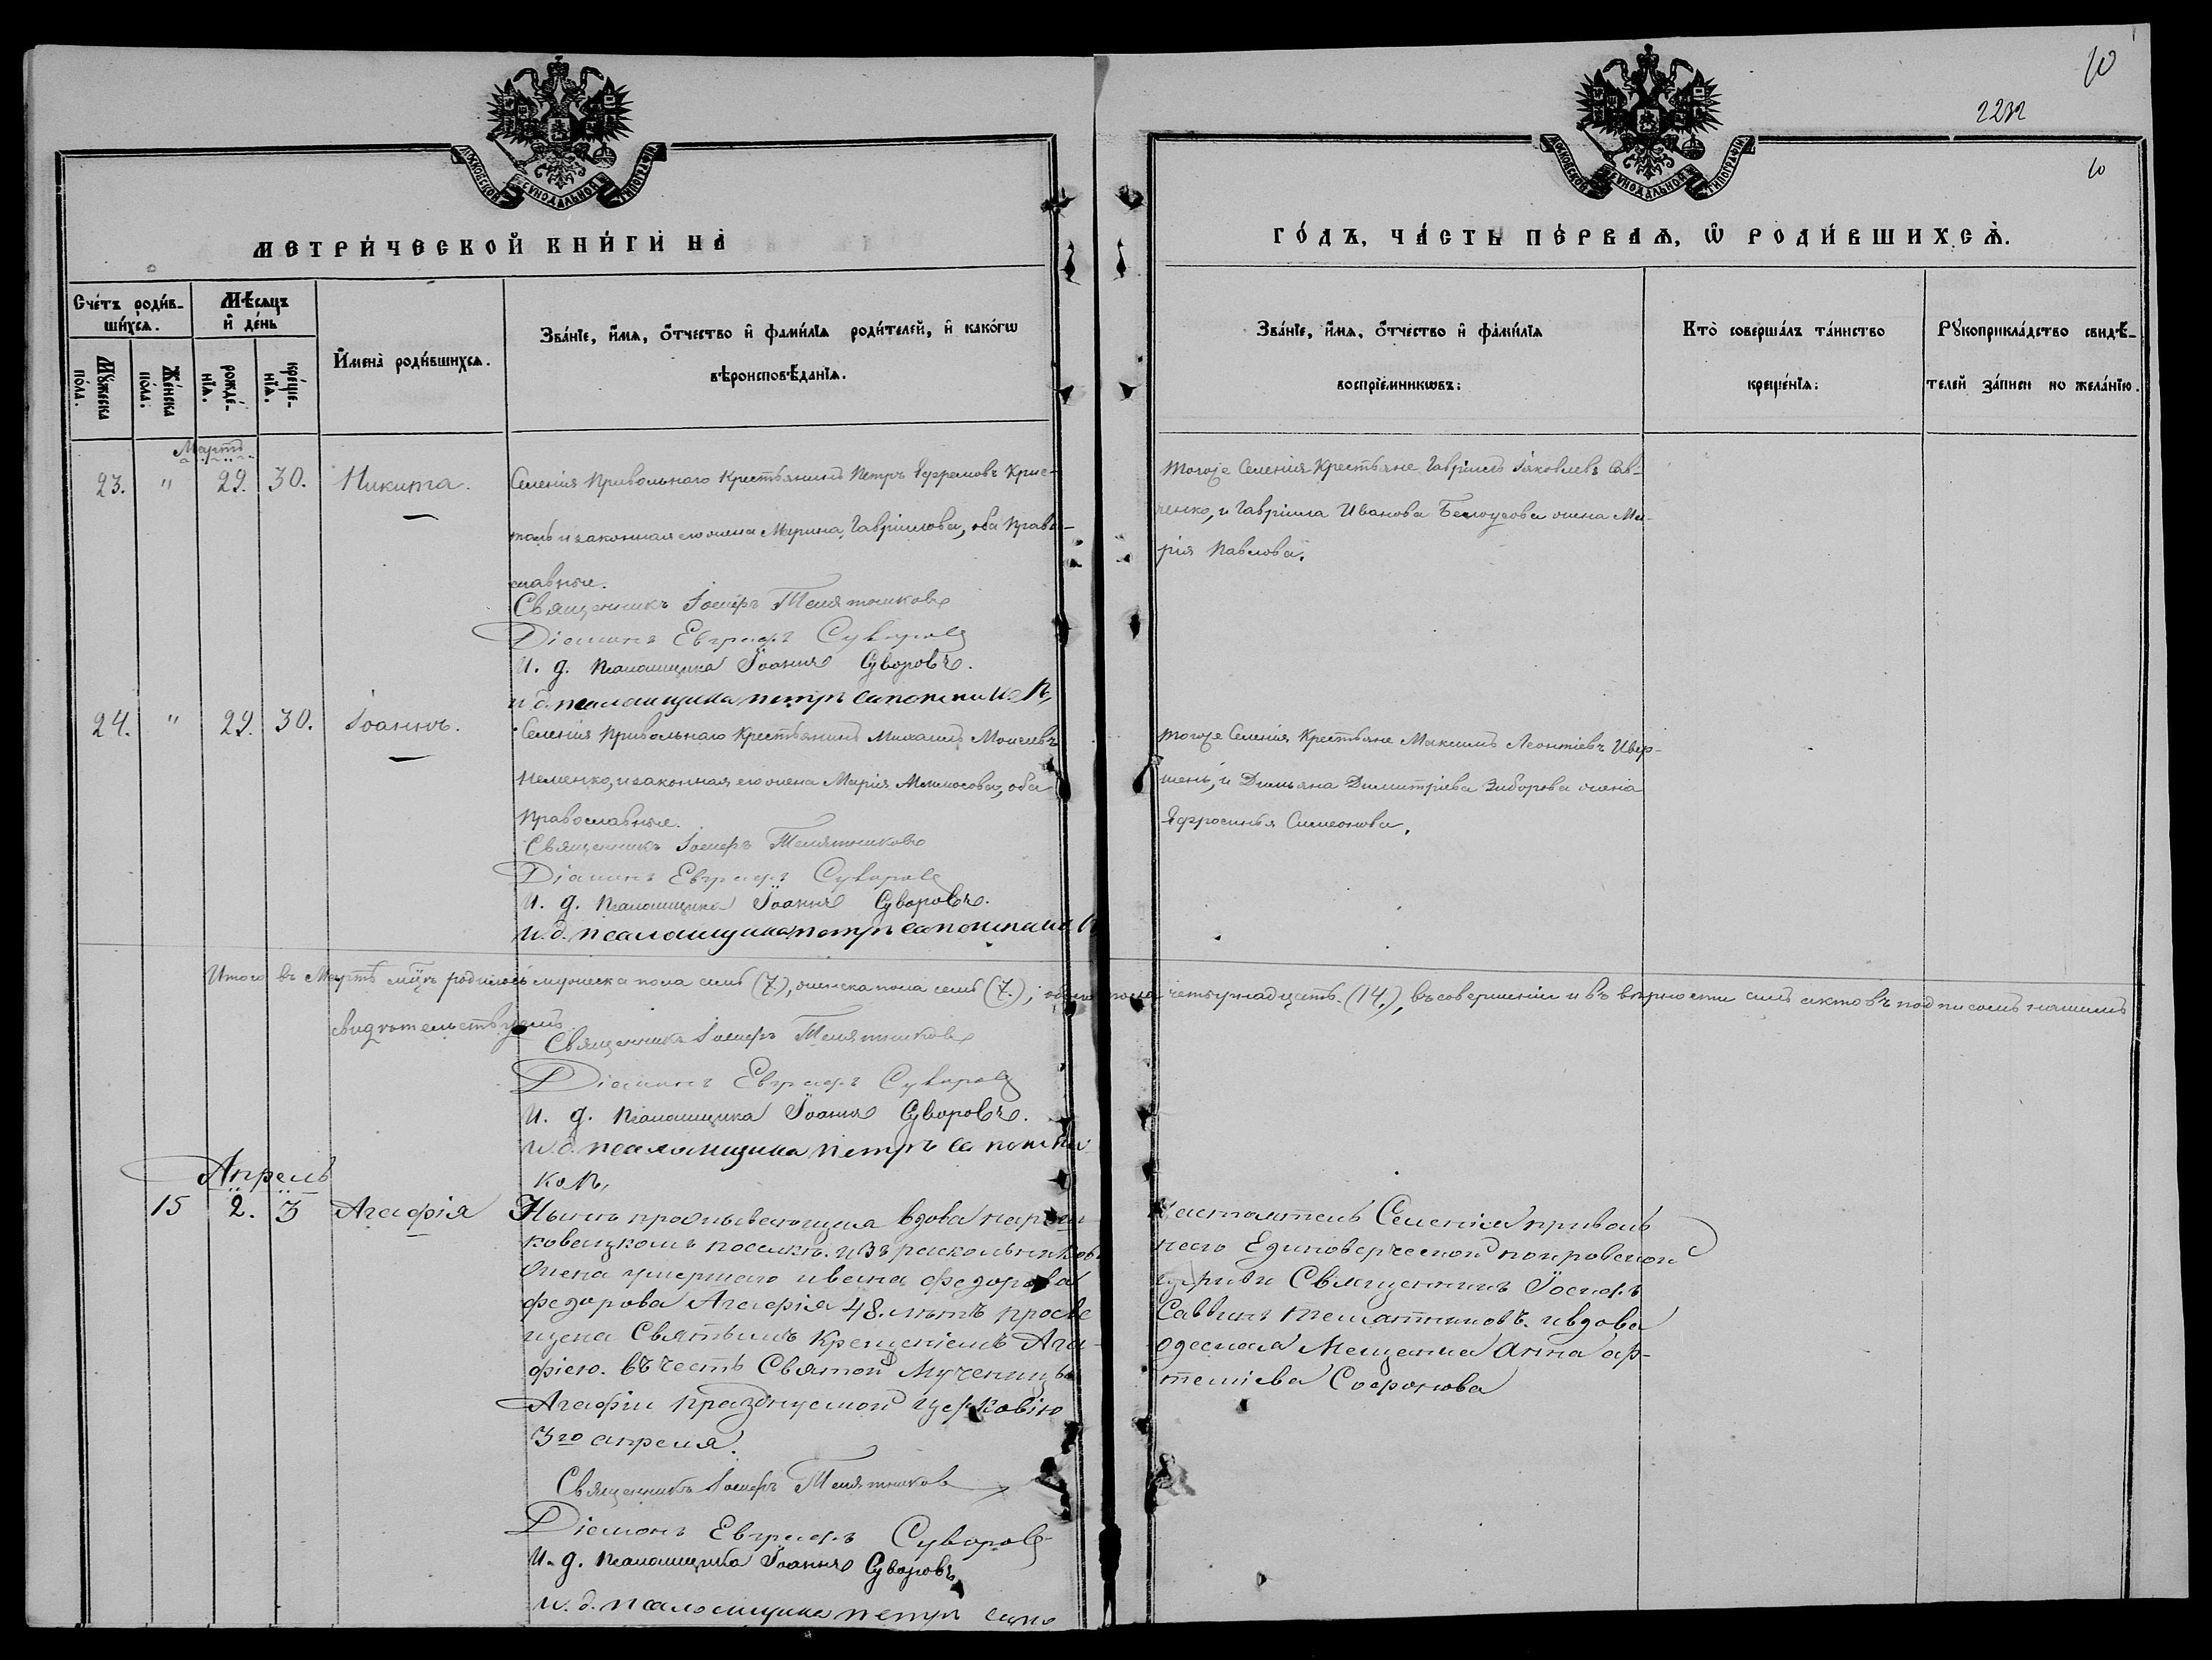 10
2232
10
МОСКОВСКОЙ СѴНОДАЛЬНОЙ ТИПОГРАФІИ
МОСКОВСКОЙ СѴНОДАЛЬНОЙ ТИПОГРАФІИ
МЕТРИ́ЧЕСКОЙ КНИ́ГИ НА̀
ГО́ДЪ, ЧА́СТЬ ПЕ́РВАѦ, Ѡ҆ РОДИ́ВШИХСѦ.
Сче́тъ роди́в-
шихсѧ.
Мѣ́сѧцъ
и҆ де́нь
Мꙋ́жеска
по́ла.
Же́нска
по́ла.
рожде́-
нїѧ.
креще́-
нїѧ.
И҆мена̀ роди́вшихсѧ.
Зва́нїе, и҆́мѧ, ѻ҆́тчество и҆ фами́лїѧ роди́телей, и҆ како́гѡ
вѣроисповѣ́данїѧ.
Зва́нїе, и҆́мѧ, ѻ҆́тчество и҆ фами́лїѧ
воспрїе́мникѡвъ:
Кто̀ соверша́лъ та́инство
креще́нїѧ:
Рꙋкоприкла́дство свидѣ́-
телей за́писи по жела́нїю.
Мартъ
23. " 29. 30. Никита.
Селенія Привольнаго Крестьянинъ Петръ Ефремовъ Крис-
таль и законная его жена Марина Гавріилова, оба Право-
славные.
Священникъ Іосифъ Телятниковъ
Діаконъ Евграфъ Суворовъ
И. д. псаломщика Іоаннъ Суворовъ.
и.д. псаломщика петръ сапожникоВъ
тогоже Селенія Крестьяне Гавріилъ Іаковлевъ Сав-
ченко, и Гавріила Иванова Белоусова жена Ма-
рія Павлова.
24. " 29. 30. Іоаннъ.
Селенія Привольнаго Крестьянинъ Михаилъ Моисеевъ
Неменко, и законная его жена Марія, оба
Православные.
Священникъ Іосифъ Телятниковъ
Діаконъ Евграфъ Суворовъ
И. д. псаломщика Іоаннъ Суворовъ.
и.д. псаломщика петръ сапожников
тогоже Селенія Крестьяне Максимъ Леонтіевъ
и Димитріева Зиборова жена
Ефросинья Симеонова.
Итого въ Мартѣ мцѣ родилось мужеска пола семь (7), женска пола семь (7.); обоего пола четырнадцать. (14.), въ совершеніи и въ вѣрности сихъ актовъ подписомъ нашимъ
свидѣтельствуемъ
Священникъ Іосифъ Телятниковъ
Діаконъ Евграфъ Суворовъ
И. д. псаломщика Іоаннъ Суворовъ.
и.д. псаломщика петръ сапожни
ковъ,
Апрель
15 2. 3 Агафія
проживающая вдова
поселкѣ. изъ раскольниковъ
жена умершаго ивана федорова
федорова Агафія 48. лѣтъ просве
щена Святымъ Крещеніемъ Ага-
фіею. въ честь Святой Мученицы
Агафіи празднуемой церковію
3го апреля.
Священникъ Іосифъ Телятников
Діаконъ Евграфъ Суворовъ
И. д. псаломщика Іоаннъ Суворовъ
и.д. псаломщика петръ сапо
Настоятель Селенія приволь
наго Единоверческой покровской
церкви Священникъ Іосифъ
Саввинъ телятниковъ. и вдова
одеская Мещанка Анна ар-
теміева Софонова